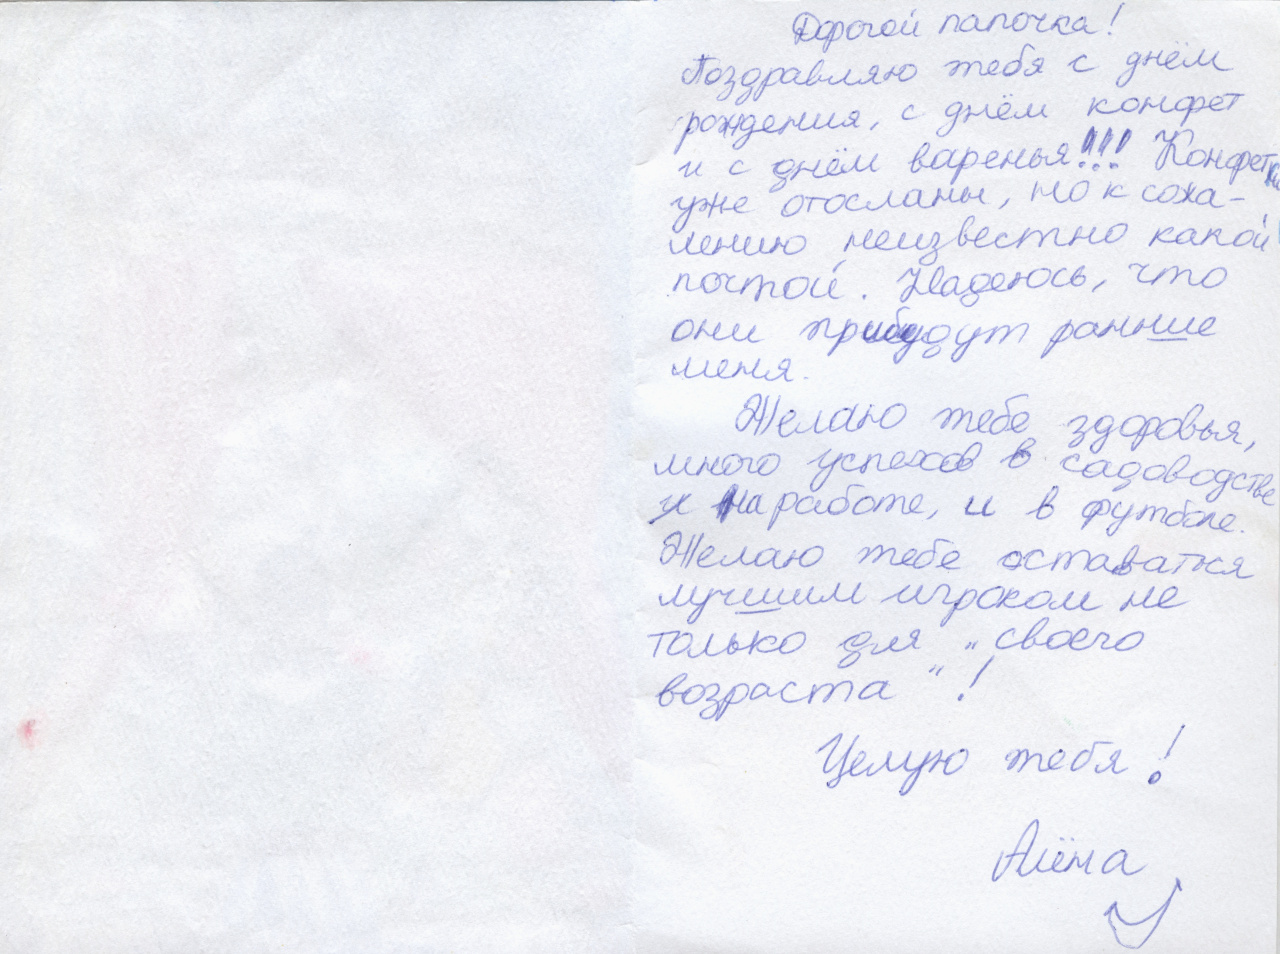 Дорогой папочка!
Поздравляю тебя с днём
рождения, с днём конфет
и с днём варенья!!! Конфетки
уже отосланы, но к сожа-
лению неизвестно какой
почтой. Надеюсь, что
они прибудут ранние
меня.
Желаю тебе здоровья,
много успехов в садоводстве
и на работе, и в футболе.
Желаю тебе оставаться
лучшим игроком не
только для „своего
возраста"!
Целую тебя!
Алёна